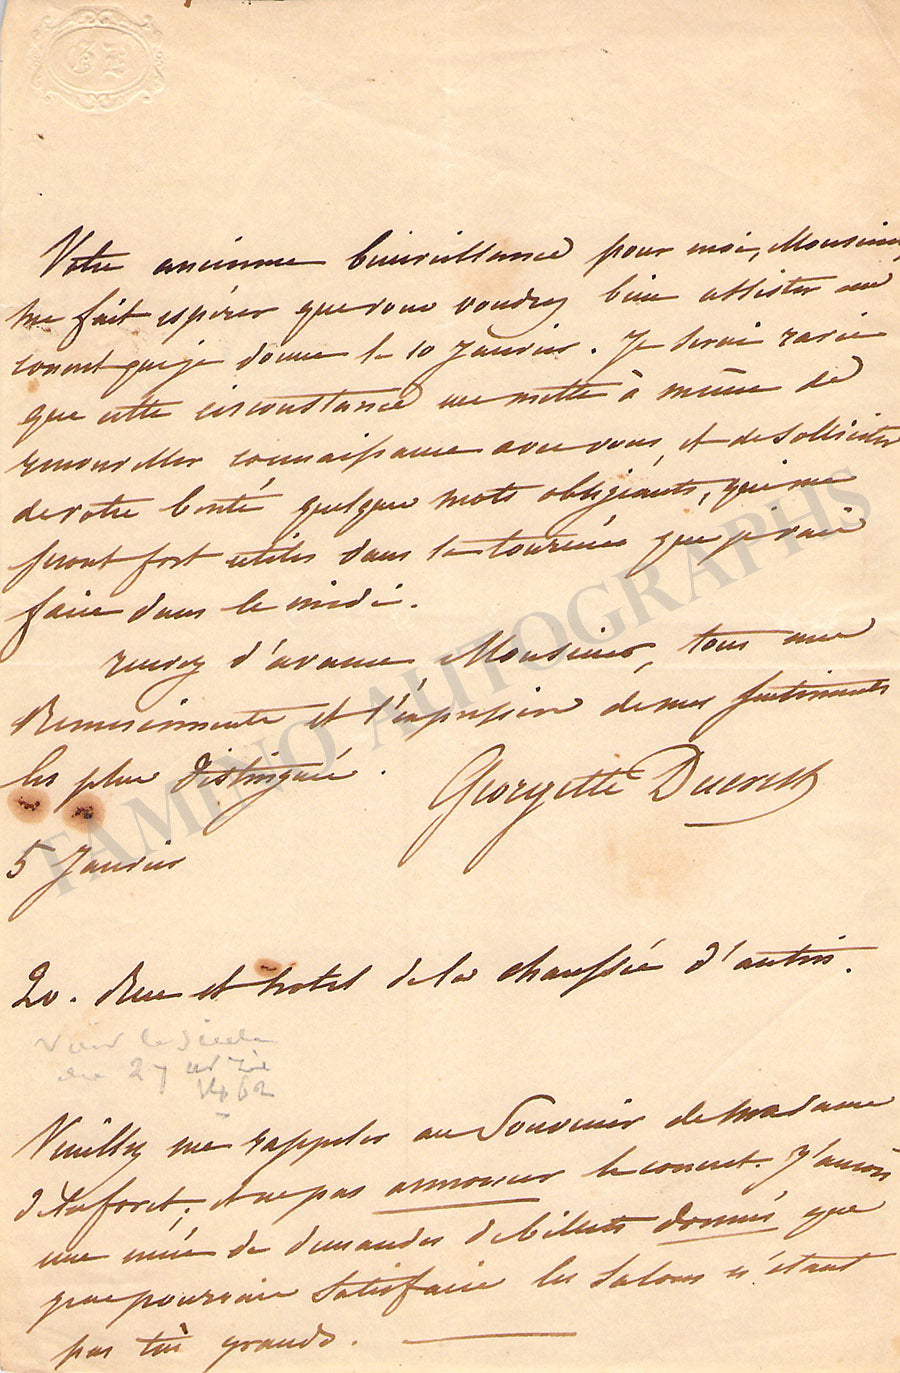 G D
Votre ancienne bienveillance pour moi, Monsieur,
me fait espérer que vous voudrez bien assister au
concert que je donne le 10 Janvier. Je serai ravie
que cette circonstance me mette à même de
renouveller connaissance avec vous, et de solliciter
de votre bonté quelque mots obligeants, qui me
seront fort utiles dans la tournée que je vais
faire dans le midi.
recevez d'avance Monsieur, tous mes
Remerciements et l'expression de mes sentiments
les plus distingués.
Georgette Ducrest
5 Janvier
20. Rue et hotel de la chaussée d'antin.
Voir le Siècle
du 27
1862
Veuillez me rappeler au Souvenir de madame
et ne pas annoncer le concert. J'aurois
une nuée de demandes de billets donnés que
je ne pourrais satisfaire les salons n'étant
pas très grands.
TAMINO AUTOGRAPHS